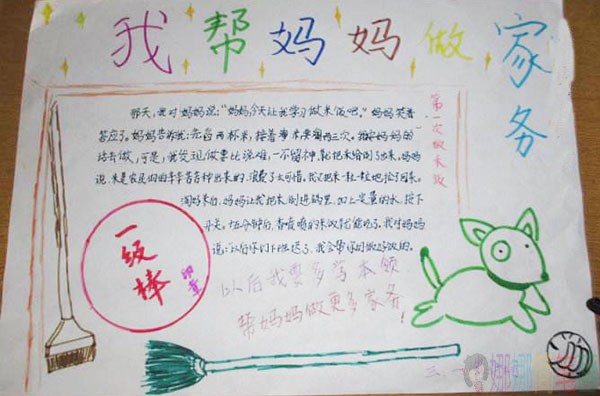 我帮妈妈做家务
第一次做米饭
那天,我对妈妈说:“妈妈今天让我学习做米饭吧。”妈妈笑着
答应了。妈妈告诉我:先舀两杯米,接着
要淘两三次。我按妈妈的
话去做,可是,我发现做要比说难,一不留神,就把米给淘了出来。妈妈
说,米是农民伯伯辛辛苦苦种出来的,浪费了太可惜。我又把米一粒一粒地捡了回来。
淘好米后,妈妈让我把米倒进锅里,加上定量的水,按下
开关。十五分钟后,香喷喷的米饭就能吃了。我对妈妈
说:以后你们下班迟了,我会帮你们做好饭的。
一级棒
以后我要多
本领
帮妈妈做更多家务!
三、一
娜娜